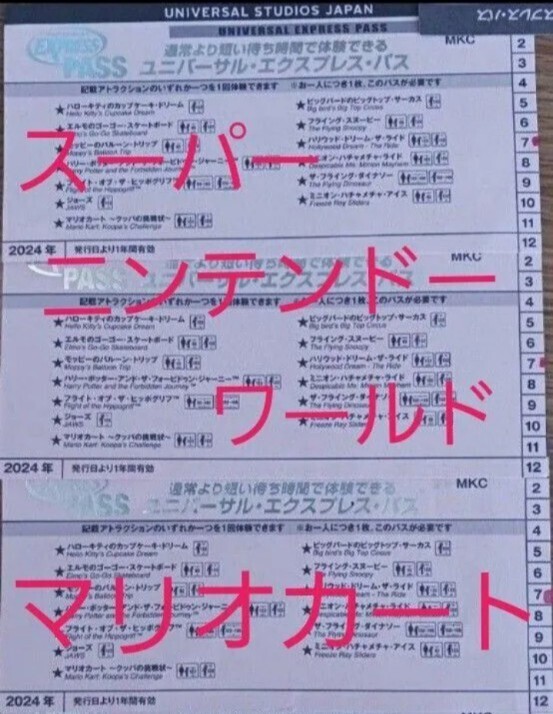 UNIVERSAL STUDIOS JAPAN
スプレス・パス
UNIVERSAL EXPRESS PASS
MKC
EXPRESS
PASS
通常より短い待ち時間で体験できる
ユニバーサル・エクスプレス・パス
記載アトラクションのいずれか一つを1回体験できます ※お一人につき1枚、このパスが必要です
★ハローキティのカップケーキ・ドリーム
Hello Kitty's Cupcake Dream
★エルモのゴーゴー・スケートボード
Elmo's Go-Go Skateboard
モッピーのバルーン・トリップ
Moppy's Balloon Trip
ハリー・
Harry Potter and the Forbidden Journey
フライト・オブ・ザ・ヒッポグリフ™
Flight of the Hippogriff™
★ジョーズ
JAWS
★マリオカート ～クッパの挑戦状～
Mario Kart: Koopa's Challenge
★ビッグバードのビッグトップ・サーカス
Big Bird's Big Top Circus
★フライング・スヌーピー
The Flying Snoopy
★ハリウッド・ドリーム・ザ・ライド
Hollywood Dream - The Ride
ミニオン・ハチャメチャ・ライド
Despicable Me Minion Mayhem
★ザ・フライング・ダイナソー
The Flying Dinosaur
★ミニオン・ハチャメチャ・アイス
Freeze Ray Sliders
2
3
4
5
6
7
8
9
10
11
12
2024年 発行日より1年間有効
スーパー
MKC
PASS
ユニバーサル・エクスプレス・パス
記載アトラクションのいずれか一つを1回体験できます ※お一人につき1枚、このパスが必要です
★ハローキティのカップケーキ・ドリーム
Hello Kitty's Cupcake Dream
★エルモのゴーゴー・スケートボード
Elmo's Go-Go Skateboard
★モッピーのバルーン・トリップ
Moppy's Balloon Trip
★ハリー・ポッター・アンド・ザ・フォービドゥン・ジャーニー™
Harry Potter and the Forbidden Journey™
★フライト・オブ・ザ・ヒッポグリフ™
Flight of the Hippogriff™
★ジョーズ
JAWS
★マリオカート ～クッパの挑戦状～
Mario Kart: Koopa's Challenge
★ビッグバードのビッグトップ・サーカス
Big Bird's Big Top Circus
★フライング・スヌーピー
The Flying Snoopy
★ハリウッド・ドリーム・ザ・ライド
Hollywood Dream - The Ride
★ミニオン・ハチャメチャ・ライド
Despicable Me Minion Mayhem
★ザ・フライング・ダイナソー
The Flying Dinosaur
ハチャメチャ・アイス
Freeze Ray Sliders
2
3
4
5
6
7
8
9
10
11
12
2024年 発行日より1年間有効
ニンテンドー
ワールド
MKC
PASS
通常より短い待ち時間で体験できる
ユニバーサル・エクスプレス・パス
記載アトラクションのいずれか一つを1回体験できます ※お一人につき1枚、このパスが必要です
★ハローキティのカップケーキ・ドリーム
Hello Kitty's Cupcake Dream
★エルモのゴーゴー・スケートボード
Elmo's Go-Go Skateboard
バルーン・トリップ
Balloon Trip
ポッター・アンド・ザ・フォービドゥン・ジャーニー
Harry Potter and the Forbidden Journey
フライト・オブ・ザ・ヒッポグリフ™
Flight of the Hippogriff™
★ジョーズ
JAWS
★マリオカート ～クッパの挑戦状～
Mario Kart: Koopa's Challenge
★ビッグバードのビッグトップ・サーカス
Big Bird's Big Top Circus
★フライング・スヌーピー
The Flying Snoopy
ハリウッド・ドリーム・ザ・ライド
Hollywood Dream - The Ride
ミニオン・ハチャメチャ・ライド
★ザ・フライング・ダイナソー
The Flying Dinosaur
★ミニオン・ハチャメチャ・アイス
Freeze Ray Sliders
2
3
4
5
6
7
8
9
10
11
12
2024年 発行日より1年間有効
マリオカート